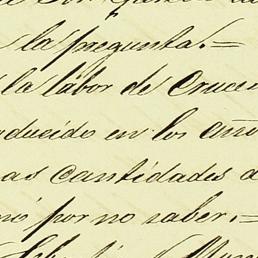 la pregunta.=
la labor de Cruce
ducido en los año
as cantidades a
ó por no saber.=